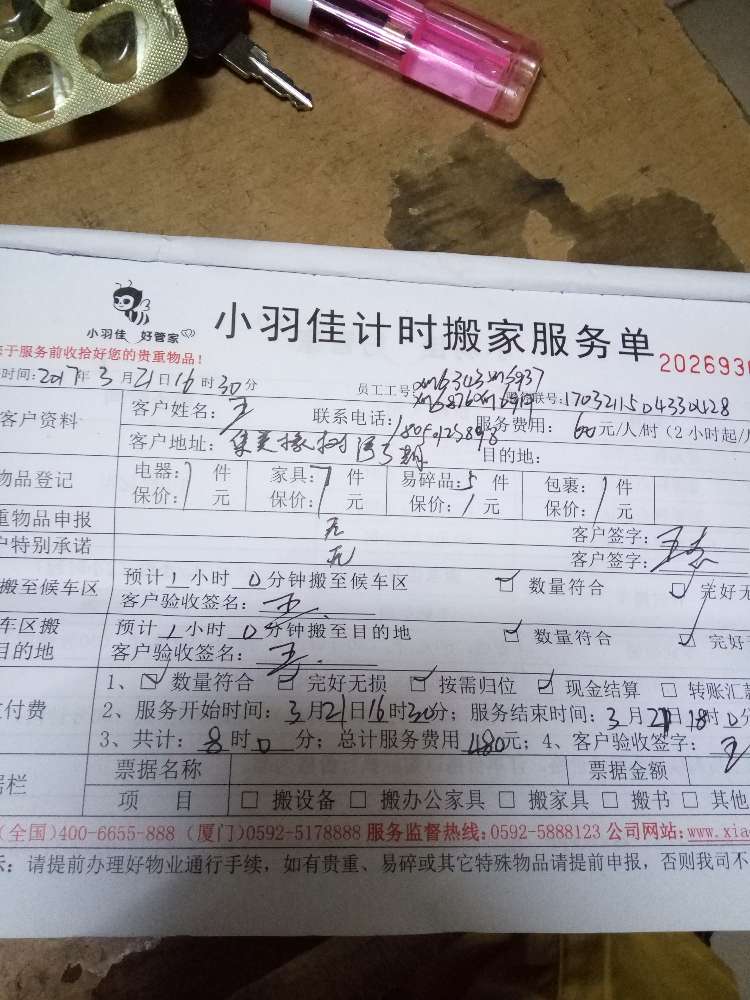 小羽佳 好管家
小羽佳计时搬家服务单
于服务前收拾好您的贵重物品！
2026930
时间：2017年3月21日16时30分
员工工号：xm6343 xm5937
联号：
客户资料
客户姓名：王
联系电话：
服务费用：60元/人/时（2小时起/
客户地址：集美
目的地：
物品登记
电器：1件
家具：1件
易碎品：5件
包裹：1件
保价：元
保价：元
保价：1元
保价：元
重物品申报
无
客户签字：王
户特别承诺
无
客户签字：
搬至候车区
预计1小时0分钟搬至候车区
数量符合
完好无
客户验收签名：王
车区搬
目的地
预计1小时0分钟搬至目的地
数量符合
完好
客户验收签名：王
付费
1、数量符合 完好无损 按需归位 现金结算 转账汇款
2、服务开始时间：3月21日16时30分；服务结束时间：3月21日18时0分
3、共计：8时0分；总计服务费用480元；4、客户验收签字：王
据栏
票据名称
票据金额
项 目
搬设备 搬办公家具 搬家具 搬书 其他
（全国）400-6655-888（厦门）0592-5178888 服务监督热线：0592-5888123 公司网站：www.xia
示：请提前办理好物业通行手续，如有贵重、易碎或其它特殊物品请提前申报，否则我司不